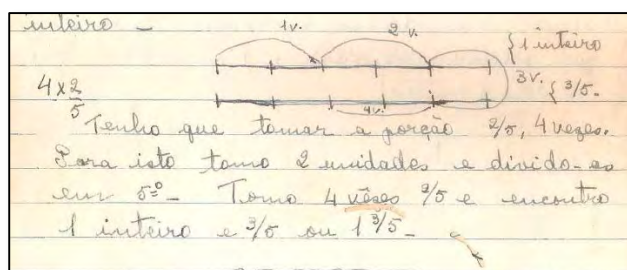 inteiro -
1v. 2 v. { 1 inteiro
3v.
4 x 2/5 { 3/5-
4v.
Tenho que tomar a porção 2/5, 4 vezes.
Para isto tomo 2 unidades e divido-as
em 5º- Tomo 4 vêzes 2/5 e encontro
1 inteiro e 3/5 ou 1 3/5-